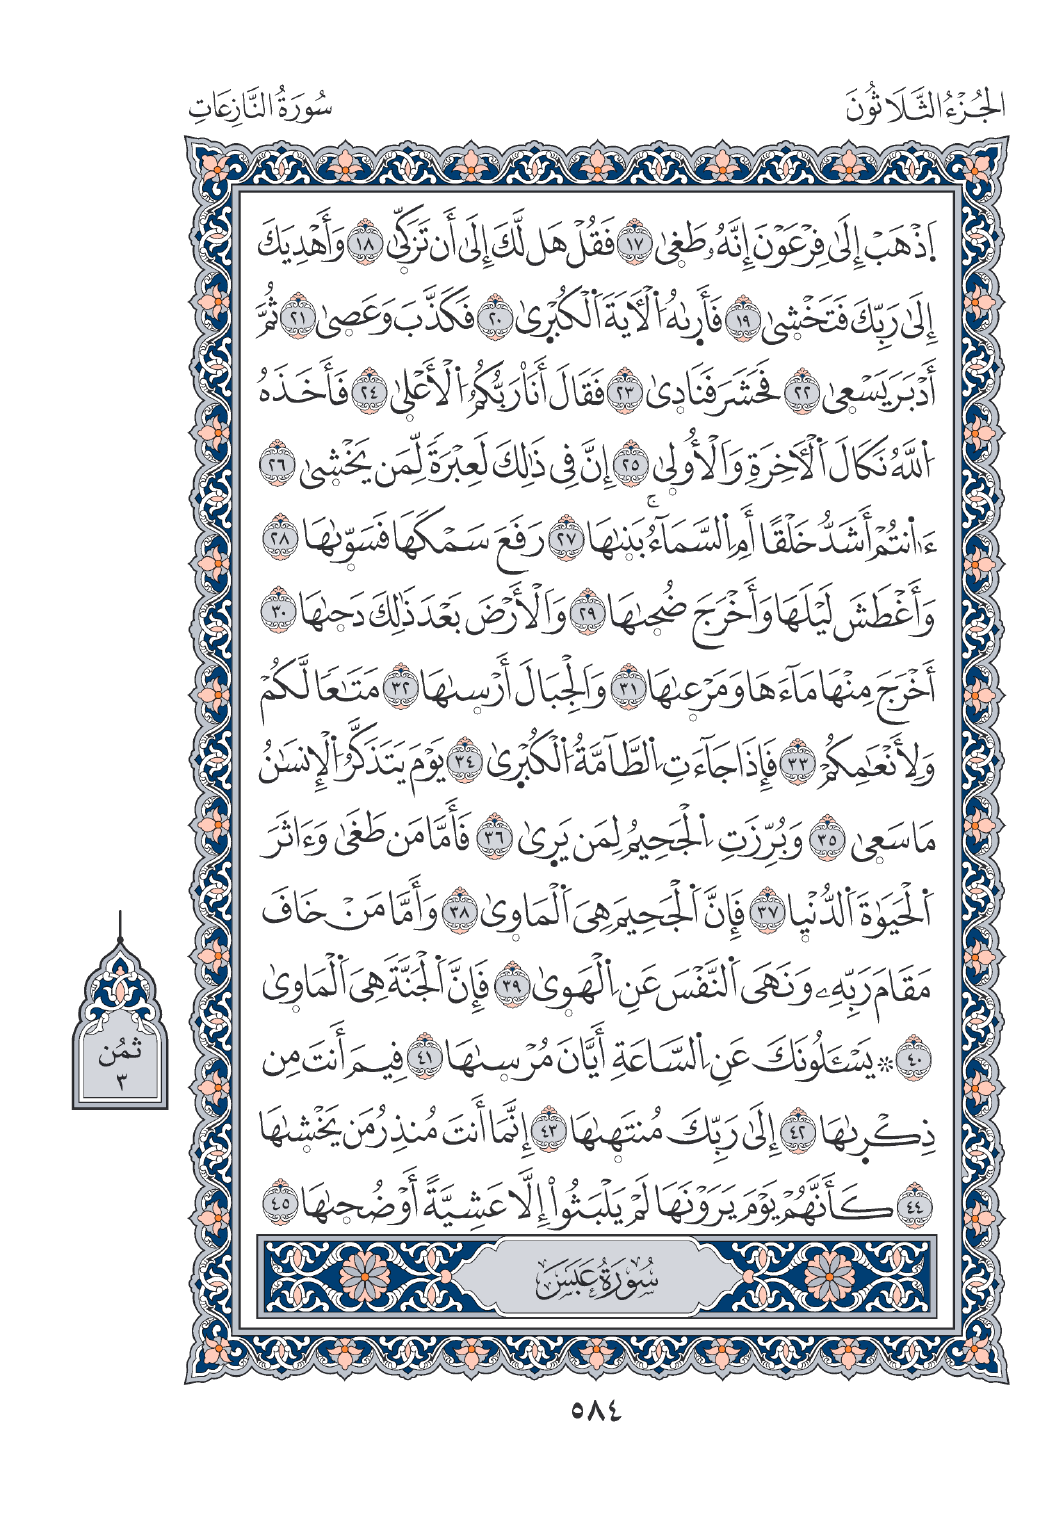 الجُزْءُ الثَّلَاثُونَ
سُورَةُ النَّازِعَاتِ
اِ۪ذْهَبْ إِلَىٰ فِرْعَوْنَ إِنَّهُۥ طَغٜىٰ ١٧ فَقُلْ هَل لَّكَ إِلَىٰ أَن تَزَّكّٜىٰ ١٨ وَأَهْدِيَكَ
إِلَىٰ رَبِّكَ فَتَخْشٜىٰ ١٩ فَأَرٜىٰهُ اُ۬لْأٓيَةَ اَ۬لْكُبْرٜىٰ ٢٠ فَكَذَّبَ وَعَصٜىٰ ٢١ ثُمَّ
أَدْبَرَ يَسْعٜىٰ ٢٢ فَحَشَرَ فَنَادٜىٰ ٢٣ فَقَالَ أَنَا۠ رَبُّكُمُ اُ۬لْأَعْلٜىٰ ٢٤ فَأَخَذَهُ
اُ۬للَّهُ نَكَالَ اَ۬لْأٓخِرَةِ وَالْأُولٜىٰ ٢٥ إِنَّ فِى ذَٰلِكَ لَعِبْرَةً لِّمَن يَخْشٜىٰ ٢٦
ءَا۬نتُمْ أَشَدُّ خَلْقًا أَمِ اِ۬لسَّمَآءُۚ بَنٜىٰهَا ٢٧ رَفَعَ سَمْكَهَا فَسَوّٜىٰهَا ٢٨
وَأَغْطَشَ لَيْلَهَا وَأَخْرَجَ ضُحٜىٰهَا ٢٩ وَالْأَرْضَ بَعْدَ ذَٰلِكَ دَحٜىٰهَا ٣٠
أَخْرَجَ مِنْهَا مَآءَهَا وَمَرْعٜىٰهَا ٣١ وَالْجِبَالَ أَرْسٜىٰهَا ٣٢ مَتَٰعًا لَّكُمْ
وَلِأَنْعَٰمِكُمْ ٣٣ فَإِذَا جَآءَتِ اِ۬لطَّآمَّةُ اُ۬لْكُبْرٜىٰ ٣٤ يَوْمَ يَتَذَكَّرُ اُ۬لْإِنسَٰنُ
مَا سَعٜىٰ ٣٥ وَبُرِّزَتِ اِ۬لْجَحِيمُ لِمَن يَرٜىٰ ٣٦ فَأَمَّا مَن طَغَىٰ وَءَاثَرَ
اَ۬لْحَيَوٰةَ اَ۬لدُّنْيٜا ٣٧ فَإِنَّ اَ۬لْجَحِيمَ هِىَ اَ۬لْمَاوٜىٰ ٣٨ وَأَمَّا مَنْ خَافَ
مَقَامَ رَبِّهِۦ وَنَهَى اَ۬لنَّفْسَ عَنِ اِ۬لْهَوٜىٰ ٣٩ فَإِنَّ اَ۬لْجَنَّةَ هِىَ اَ۬لْمَاوٜىٰ
٤٠ ۞ يَسْـَٔلُونَكَ عَنِ اِ۬لسَّاعَةِ أَيَّانَ مُرْسٜىٰهَا ٤١ فِيمَ أَنتَ مِن
ذِكْرٜىٰهَا ٤٢ إِلَىٰ رَبِّكَ مُنتَهٜىٰهَا ٤٣ إِنَّمَا أَنتَ مُنذِرُ مَن يَخْشٜىٰهَا
٤٤ كَأَنَّهُمْ يَوْمَ يَرَوْنَهَا لَمْ يَلْبَثُوا۟ إِلَّا عَشِيَّةً أَوْ ضُحٜىٰهَا ٤٥
سُورَةُ عَبَسَ
ثُمُن
٣
٥٨٤